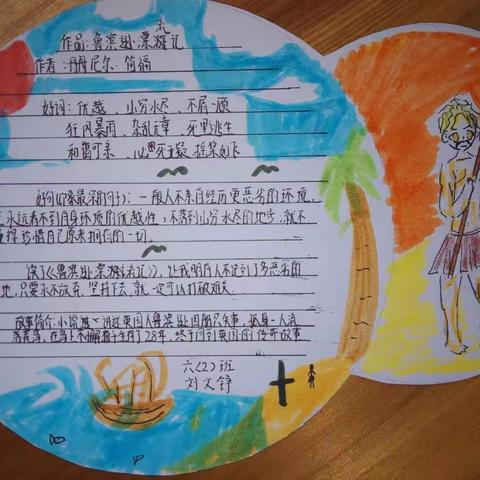 作品:鲁滨逊漂流记
作者:丹尼尔·笛福
好词:优越、山穷水尽、不屑一顾
狂风暴雨、杂乱无章、死里逃生
和蔼可亲、心思、摇桨如飞
好句(印象最深的句子):一般人不亲自经历更恶劣的环境,
永远看不到自身环境的优越性;不落到山穷水尽的地步,就不
懂得珍惜自己原来拥有的一切。
读了《鲁滨逊漂流记》,让我明白人不论到了多恶劣的
地,只要永不放弃,坚持下去,就一定可以打破难关。
故事简介:小说讲述英国人鲁滨逊因船只失事,孤身一人流
落荒岛,在岛上不懈生活了28年,终于回到英国的传奇故事
六(2)班
刘文铮